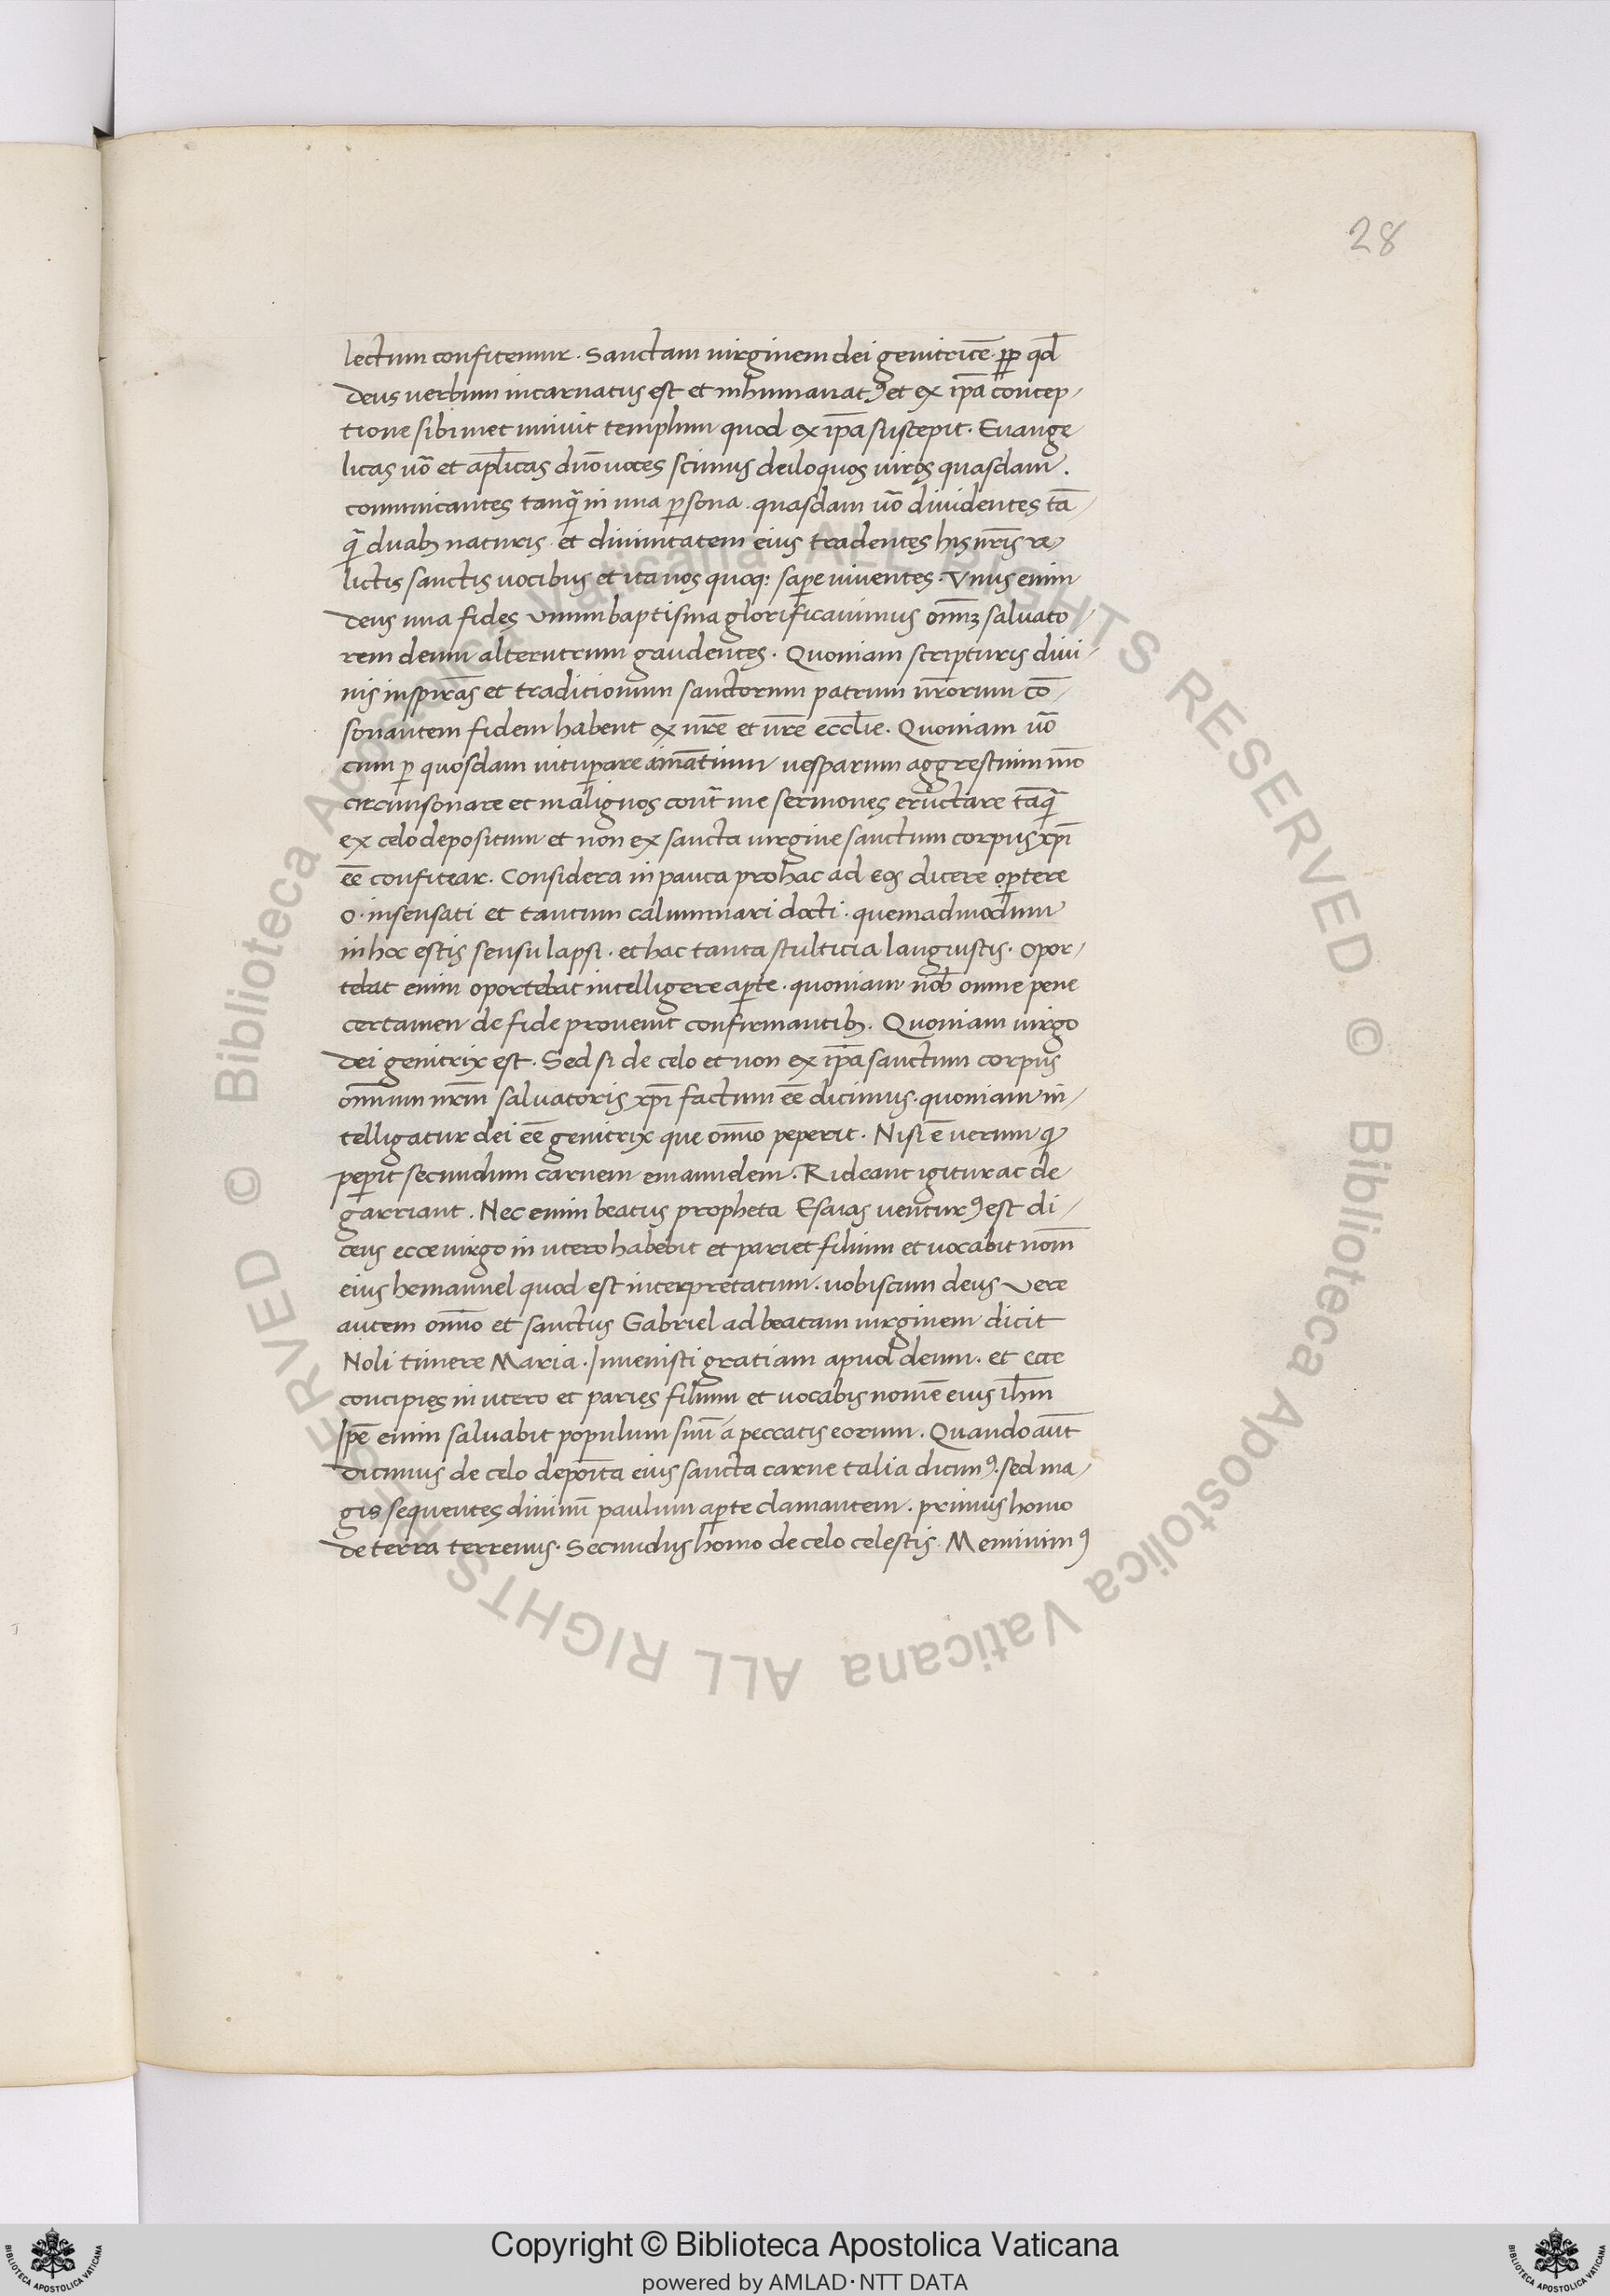 28
lectum confitemur. Sanctam uirginem dei genitricē. ꝓp̄ qd̄
deus uerbum incarnatus est et inhumanatꝰ et ex ip̄a concep-
tione sibimet univit templum quod ex ip̄a suscepit. Euange
licas uō et apl̄icas dn̄o uoces scimus deiloquos uiros quasdam.
communicantes tanq̄ in una ꝑsona. quasdam uō diuidentes tā-
q̄ duabȝ naturis et diuinitatem eius tradentes his nr̄is re-
lictis sanctis uocibus et ita nos quoqȝ saꝑe uiuentes. Vnus enim
deus una fides vnum baptisma glorificauimus om̄nȝ saluato-
rem deum alterutrum gaudentes. Quoniam scripturis diui-
nis inspirās et traditionum sanctorum patrum nr̄orum cō-
sonantem fidem habent ex nr̄e et ur̄e eccl̄ie. Quoniam uō
cum ꝑ quosdam uituꝑare amātium uesparum aggrestium mō
circumsonare et malignos contr̄ me sermones eructare tāq̄
ex celo depositum et non ex sancta uirgine sanctum corpus xp̄i
eē confitear. Considera in pauca pro hac ad eos dicere oꝑtere
O. insensati et tantum calumniari docti. quemadmodum
in hoc estis sensu lapsi. et hac tanta stulticia langustis. Opor-
tebat enim oportebat intelligere aꝑte. quoniam nob̄ omne pene
certamen de fide prouenit confirmantibȝ. Quoniam uirgo
dei genitrix est. Sed si de celo et non ex ip̄a sanctum corpus
om̄nium nr̄m saluatoris xp̄i factum eē dicimus. quoniam in-
telligatur dei eē genitrix que om̄io peperit. Nisi ē uerum q
peꝑit secundum carnem emanudem. Rideant igitur ac de
garriant. Nec enim beatus propheta Esaias venturꝰ est di-
cens ecce uirgo in utero habebit et pariet filium et uocabit nom̄
eius hemanuel quod est interpretatum. nobiscum deus Vere
autem om̄io et sanctus Gabriel ad beatam uirginem dicit
Noli timere Maria. Inuenisti gratiam apud deum. et ecce
concipies in utero et paries filium et uocabis nomē eius ih̄m
Ip̄e enim saluabit populum suū a peccatis eorum. Quando aūt
dicimus de celo deporīta eius sancta carne talia dicimꝰ. sed ma-
gis sequentes diuinū paulum aꝑte clamantem. primus homo
de terra terrenus. Secundus homo de celo celestis. Meminimꝰ
Copyright © Biblioteca Apostolica Vaticana
powered by AMLAD·NTT DATA